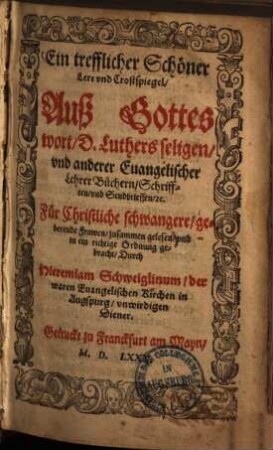 Ein trefflicher Schöner
Lere vnd Trostspiegel/
Auß Gottes
wort/D. Luthers seligen/
vnd anderer Euangelischer
Lehrer Büchern/Schriff-
ten/vnd Sendbrieffen/ꝛc.
Für Christliche schwangere/ge-
berende Frawen/zusammen gelesen/vnd
in ein richtige Ordnung ge-
bracht/Durch
Hieremiam Schweiglinum/der
waren Euangelischen Kirchen in
Augspurg/vnwirdigen
Diener.
Getruckt zu Franckfurt am Mayn/
M. D. LXXX
COLLEGII
IN